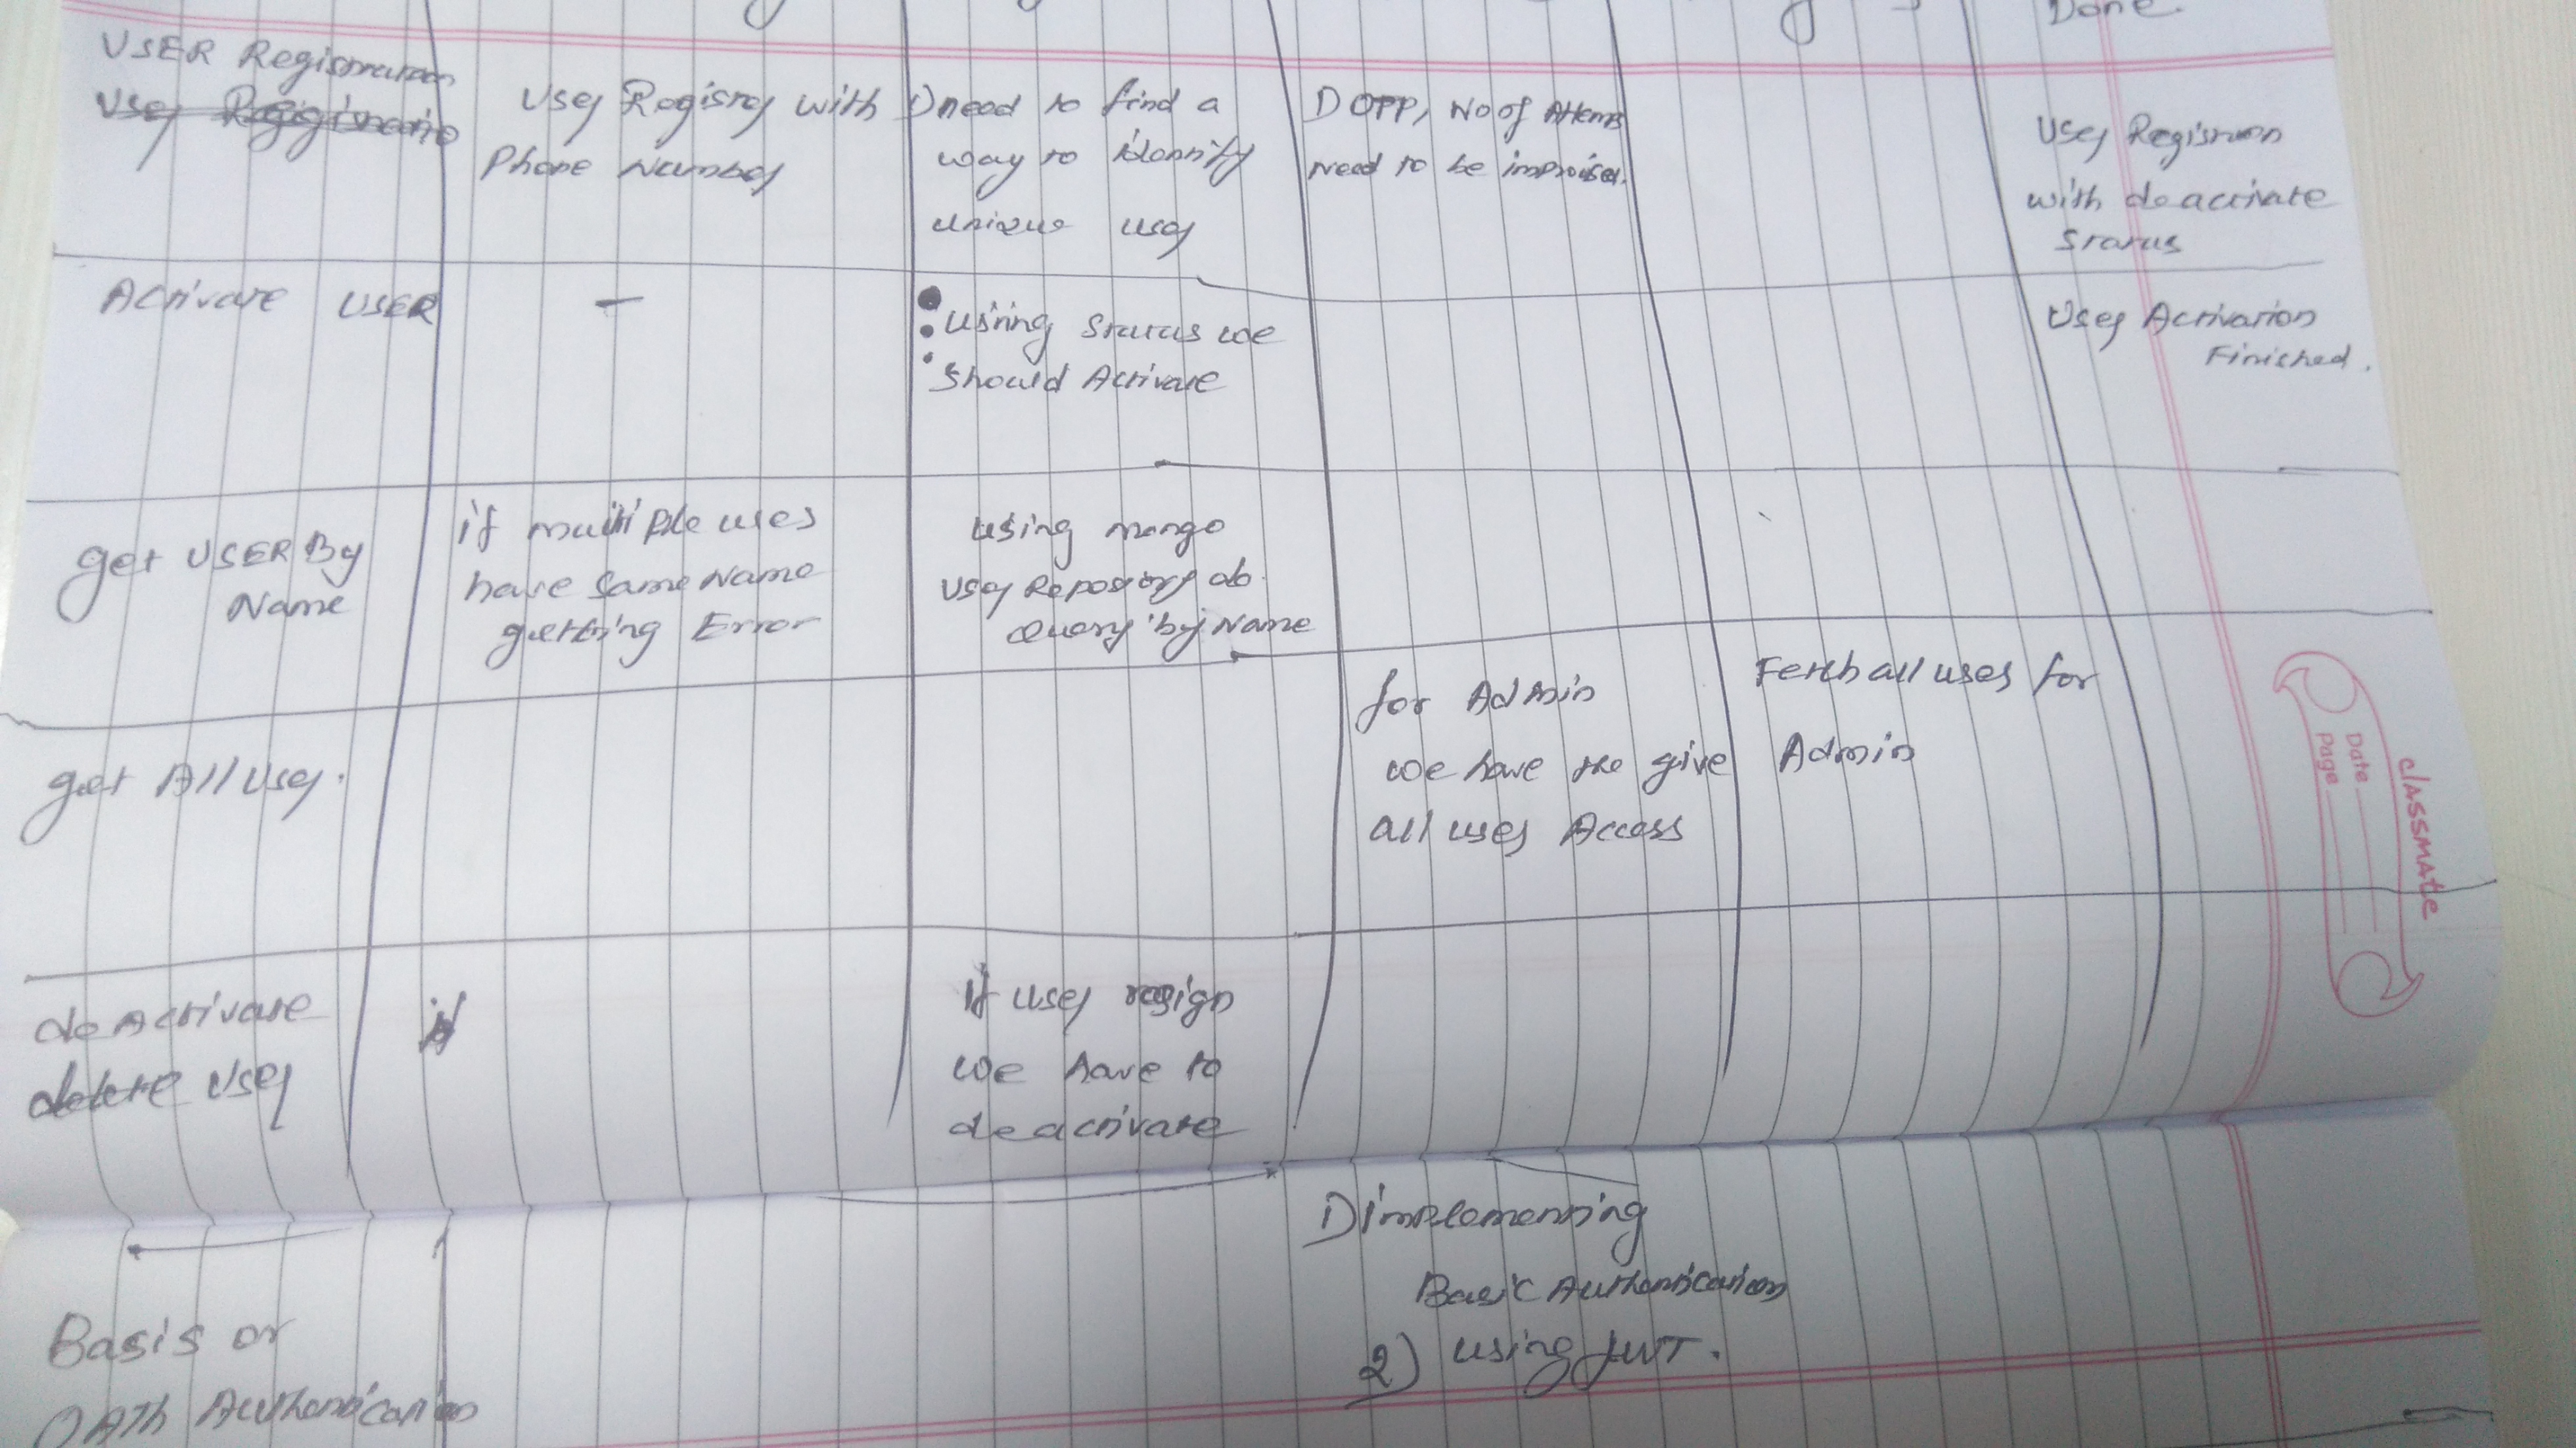 Done.
USER Registration
User Registratio
User Registry with
Phone Number
1) need to find a
way to identify
unique user
1) OTP, No of Attempts
Need to be improvised.
User Registration
with deactivate
status
Activate USER
-
using status we
should Activate
User Activation
Finished.
get USER By
Name
if multiple uses
have same Name
getting Error
using mongo
User Repository do
Query by Name
get All User.
for Admin
we have the give
all user Access
Fetch all uses for
Admin
deactivate
delete User
if user resign
we have to
deactivate
Basis or
OATh Authentication
1) implementing
Basic Authentication
2) using JWT.
classmate
Date
Page